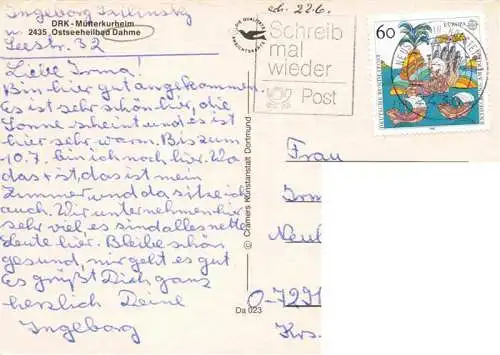 Ingeborg
DRK - Mütterkurheim
2435 Ostseeheilbad Dahme
Seestr. 32
Liebe Irma!
Bin hier gut angekommen.
Es ist sehr schön hier, die
Sonne scheint und es ist
hier sehr warm. Bis zum
10.7. bin ich noch hier. Wo
das + ist, das ist mein
Zimmer, und da sitze ich
auch. Wir unternehmen hier
sehr viel es sind alles nette
Leute hier. Bleibe schön
gesund, mir geht es gut
Es grüßt Dich ganz
herzlich Deine
Ingeborg
© Cramers Kunstanstalt Dortmund
Da 023
22.6.
Schreib
mal
wieder
Post
60
EUROPA
Frau
O-7291
Krs.